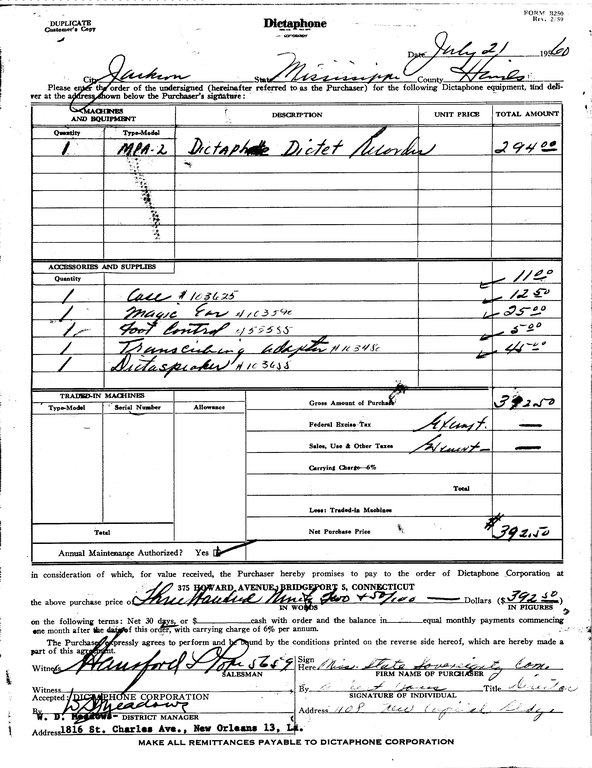 DUPLICATE
Customer's Copy
Dictaphone
CORPORATION
FORM B250
Rev. 2/59
Date July 21 1960
City Jackson State Mississippi County Hinds
Please enter the order of the undersigned (hereinafter referred to as the Purchaser) for the following Dictaphone equipment, and deliver at the address shown below the Purchaser's signature:
MACHINES AND EQUIPMENT DESCRIPTION UNIT PRICE TOTAL AMOUNT
Quantity Type-Model
1 MPA-2 Dictaphone Dictet Recorder 294.00
ACCESSORIES AND SUPPLIES
Quantity
11.00
1 Case #103625 12.50
1 Magic Ear 25.00
1 Foot Control 5.00
1 Transcribing adapter 45.00
1 Dictaspeaker
TRADED-IN MACHINES
Type-Model Serial Number Allowance
Gross Amount of Purchase 392.50
Federal Excise Tax Exempt. —
Sales, Use & Other Taxes Exempt —
Carrying Charge 6%
Total
Less: Traded-in Machines
Total
Net Purchase Price $392.50
Annual Maintenance Authorized? Yes
in consideration of which, for value received, the Purchaser hereby promises to pay to the order of Dictaphone Corporation at
375 HOWARD AVENUE, BRIDGEPORT 5, CONNECTICUT
the above purchase price of Three Hundred Ninety Two + 50/100 — Dollars ($392.50)
IN WORDS IN FIGURES
on the following terms: Net 30 days, or $ cash with order and the balance in equal monthly payments commencing
one month after the date of this order, with carrying charge of 6% per annum.
The Purchaser expressly agrees to perform and be bound by the conditions printed on the reverse side hereof, which are hereby made a
part of this agreement.
Witness Hansford 5659
SALESMAN
Sign Here Miss. State Sovereignty Com.
FIRM NAME OF PURCHASER
Witness
Accepted: DICTAPHONE CORPORATION
By Title Director
SIGNATURE OF INDIVIDUAL
By W D Meadows
W. D. Meadows- DISTRICT MANAGER
Address New Capitol Bldg
Address 1816 St. Charles Ave., New Orleans 13, La.
MAKE ALL REMITTANCES PAYABLE TO DICTAPHONE CORPORATION